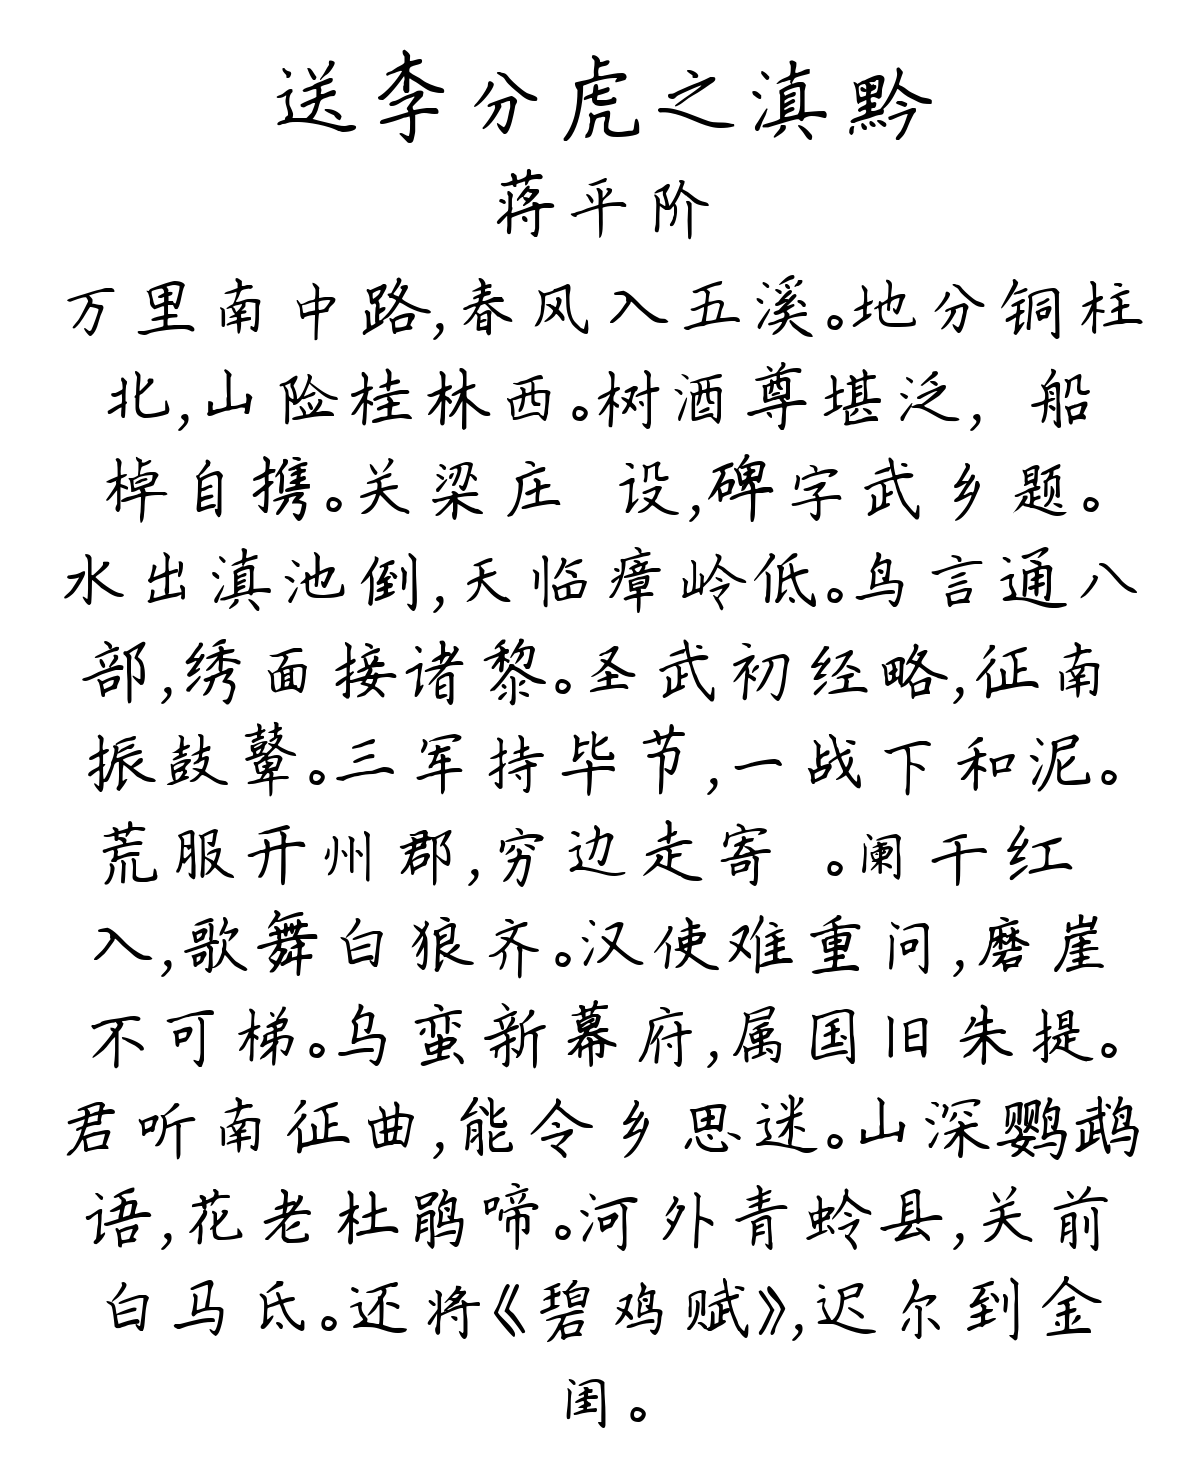 送李分虎之滇黔
蒋平阶
万里南中路,春风入五溪。地分铜柱
北,山险桂林西。树酒尊堪泛, 船
棹自携。关梁庄 设,碑字武乡题。
水出滇池倒,天临瘴岭低。鸟言通八
部,绣面接诸黎。圣武初经略,征南
振鼓鼙。三军持毕节,一战下和泥。
荒服开州郡,穷边走寄 。阑干红
入,歌舞白狼齐。汉使难重问,磨崖
不可梯。乌蛮新幕府,属国旧朱提。
君听南征曲,能令乡思迷。山深鹦鹉
语,花老杜鹃啼。河外青蛉县,关前
白马氐。还将《碧鸡赋》,迟尔到金
闺。